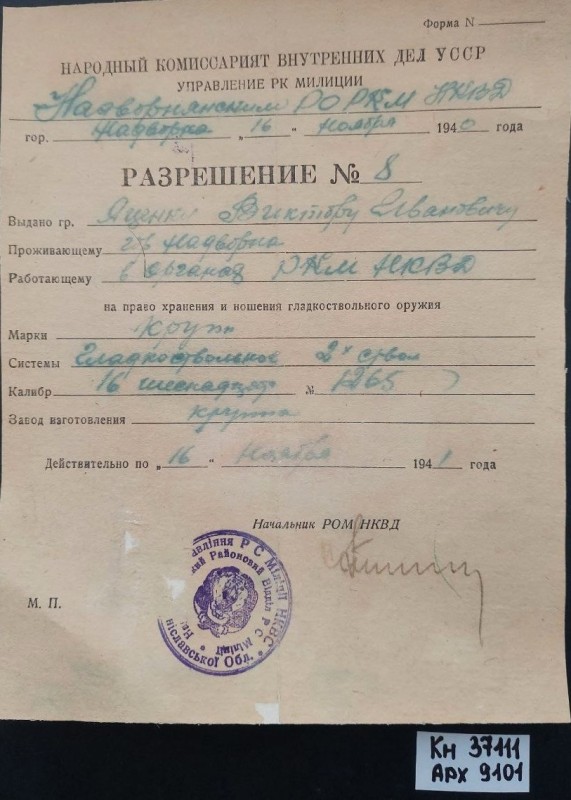 Форма N
НАРОДНЫЙ КОМИССАРИЯТ ВНУТРЕННИХ ДЕЛ УССР
УПРАВЛЕНИЕ РК МИЛИЦИИ
Надворнянским РО РКМ НКВД
гор. Надворна „16" ноября 1940 года
РАЗРЕШЕНИЕ № 8
Выдано гр. Яценко Виктору Ивановичу
Проживающему гор Надворна
Работающему в органах РКМ НКВД
на право хранения и ношения гладкоствольного оружия
Марки крупп
Системы гладкоствольное 2х ствол
Калибр 16 № 1265
Завод изготовления круппа
Действительно по „16" ноября 1941 года
Начальник РОМ НКВД
М. П.
вління Р С Міліції НКВС
кий Районовий Відділ Р С Міліції
ніславської Обл.
КН 37111
АРХ 9101